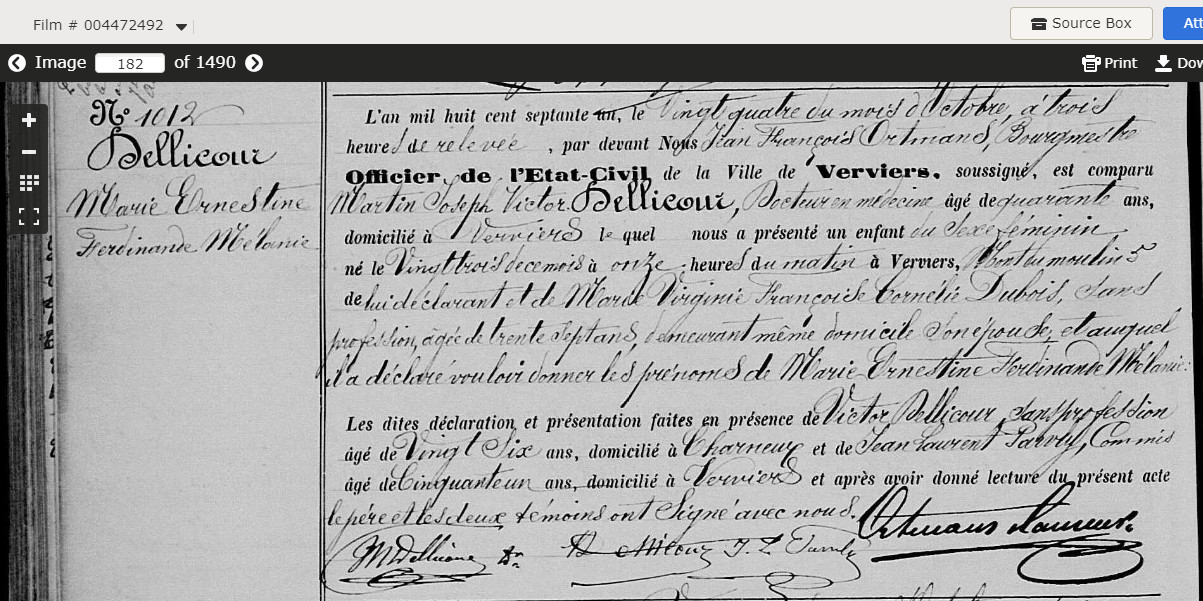 Film # 004472492
Source Box
Att
Image 182 of 1490
Print
Dow
N° 1012
Dellicour
Marie Ernestine
Ferdinande Mélanie
L'an mil huit cent septante un, le Vingt quatre du mois d'Octobre, à trois
heures de relevée , par devant Nous Jean François Ortmans, Bourgmestre
Officier de l'Etat-Civil de la Ville de Verviers, soussigné, est comparu
Martin Joseph Victor Dellicour, Docteur en médecine âgé de quarante ans,
domicilié à Verviers le quel nous a présenté un enfant du Sexe féminin
né le Vingt trois de ce mois à onze heures du matin à Verviers, Mont du moulin 5
de lui déclarant et de Marie Virginie Françoise Cornélie Dubois, sans
profession, agée de trente Sept ans, demeurant même domicile Son épouse, et auquel
il a déclaré vouloir donner les prénoms de Marie Ernestine Ferdinande Mélanie:
Les dites déclaration et présentation faites en présence de Victor Dellicour, Sans profession
âgé de Vingt Six ans, domicilié à Charneux et de Jean Laurent Parvly, Commis
âgé de Cinquante un ans, domicilié à Verviers et après avoir donné lecture du présent acte
le père et les deux témoins ont Signé avec nous.
M Dellicour Dr
Ortmans